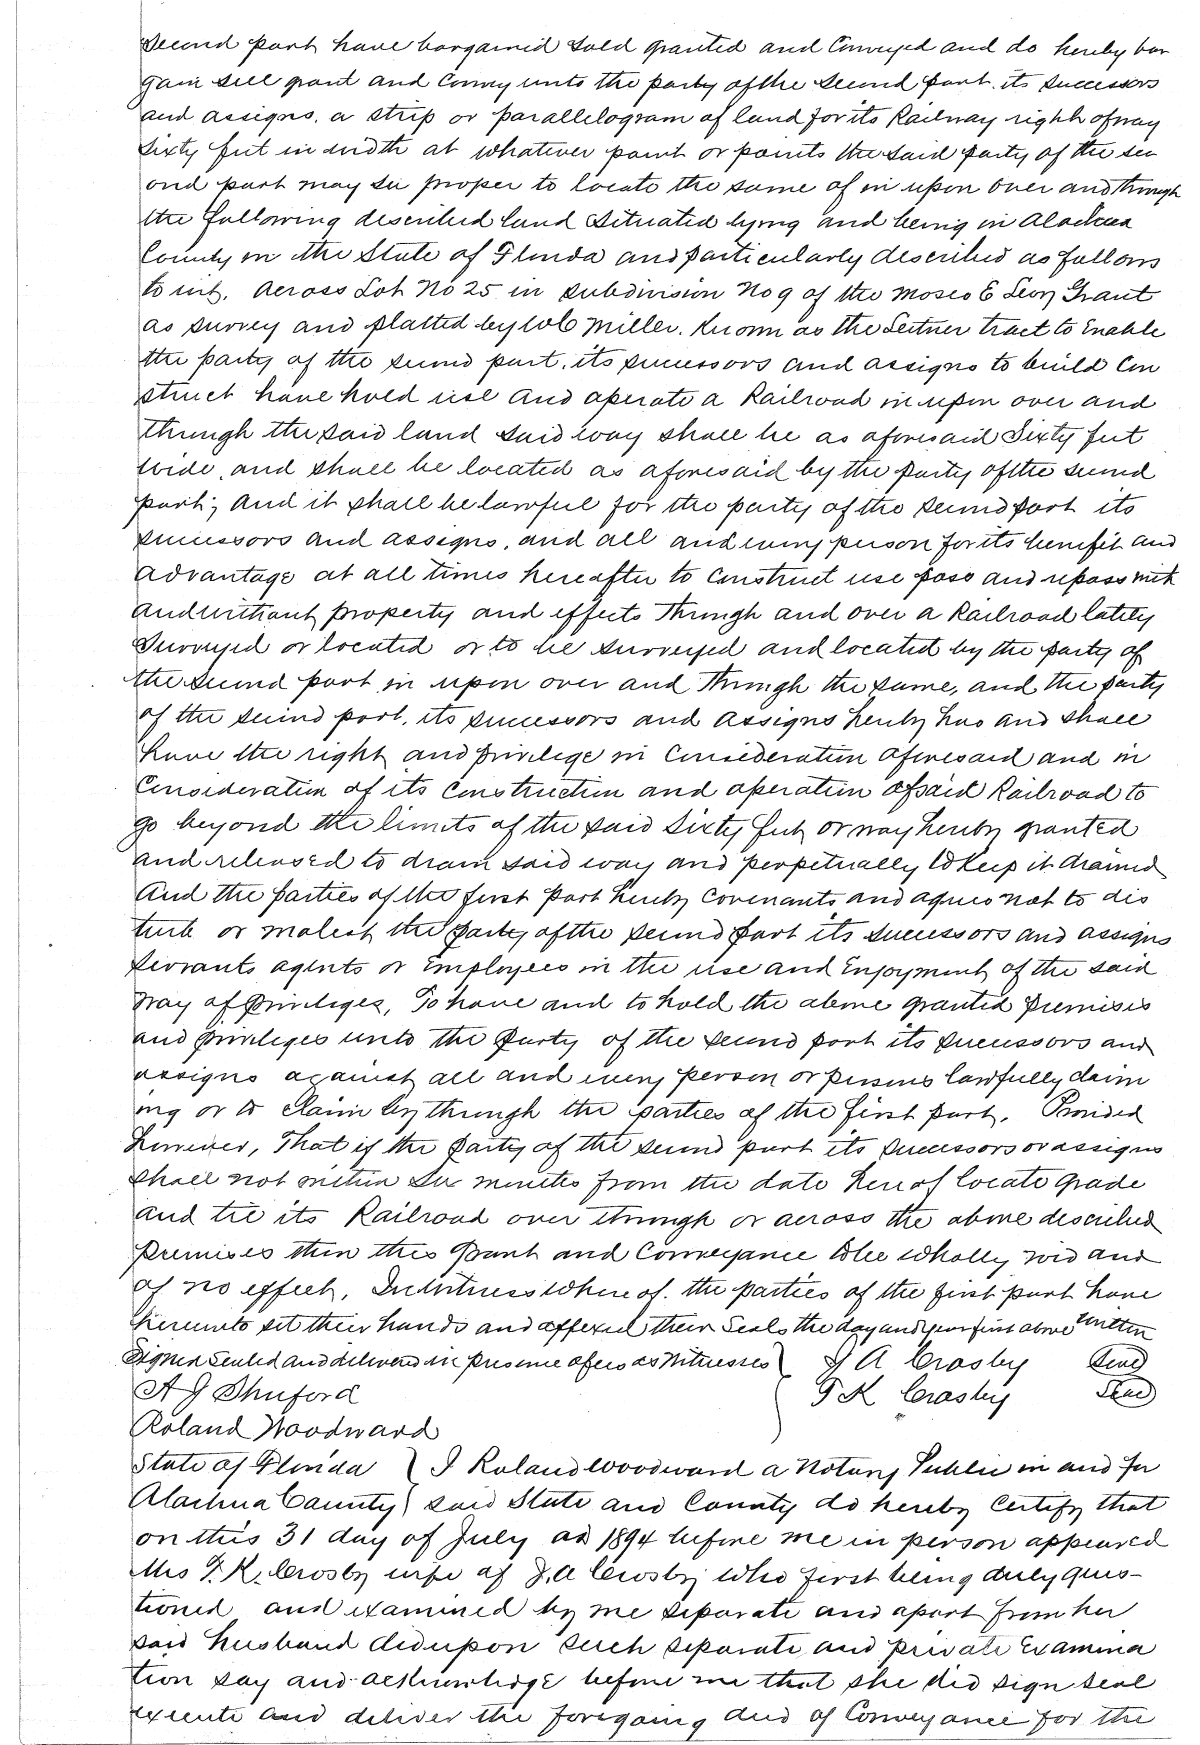 second part have bargained sold granted and Conveyed and do hereby bar
gain sell grant and Convey unto the party of the second part. its successors
and assigns. a strip or parallelogram of land for its Railway right of way
Sixty feet in width at whatever point or points the said party of the sec
ond part may see proper to locate the same of in upon over and through
the following described land Situated lying and being in Alachua
County in the State of Florida and particularly described as follows
to wit. Across Lot No 25 in subdivision No 9 of the Moses E Levy Grant
as survey and platted by W C Miller. Known as the Leitner tract to Enable
the party of the second part. its successors and assigns to build Con
struct have hold use And operate a Railroad in upon over and
through the said land said way shall be as aforesaid Sixty feet
wide, and shall be located as aforesaid by the party of the second
part; And it shall be lawful for the party of the second part its
successors and assigns, and all and every person for its benefit and
Advantage at all times hereafter to Construct use pass and repass with
and without property and effects Through and over a Railroad lately
Surveyed or located or to be surveyed and located by the party of
the second part in upon over and Through the same, and the party
of the second part, its successors and Assigns hereby has and shall
have the right and privilege in Consideration Aforesaid and in
Consideration of its Construction and operation of said Railroad to
go beyond the limits of the said Sixty feet or way hereby granted
and released to drain said way and perpetually to keep it drained
And the parties of the first part hereby Covenants and agrees not to dis
turb or molest the party of the second part its successors and assigns
servants agents or Employees in the use and Enjoyment of the said
way of privileges, To have and to hold the above granted premises
and privileges unto the party of the second part its successors and
assigns against all and every person or persons lawfully claim
ing or to claim by through the parties of the first part. Provided
however, That if the party of the second part its successors or assigns
shall not within Six months from the date hereof locate grade
and tie its Railroad over through or across the above described
premises then this grant and Conveyance to be wholly void and
of no effect. In witness whereof. the parties of the first part have
hereunto set their hands and affixed their Seals the day and year first above written
Signed Sealed and delivered in presence of us as Witnesses J A Crosby Seal
A J Shuford F K Crosby Seal
Roland Woodward
State of Florida I Roland Woodward a Notary Public in and for
Alachua County said State and County do hereby Certify that
on this 31 day of July AD 1894 before me in person appeared
Mrs F. K. Crosby wife of J. A Crosby who first being duly ques-
tioned and examined by me separate and apart from her
said husband did upon such separate and private Examina
tion say and acknowledge before me that she did sign seal
execute and deliver the foregoing deed of Conveyance for the